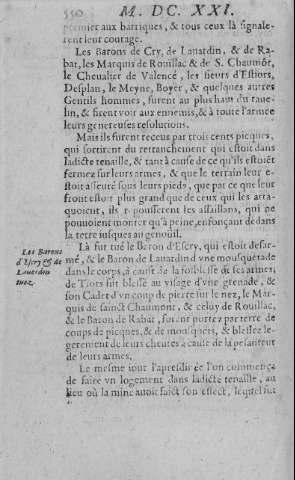 550 M. DC. XXI.
premier aux barriques, & tous ceux là signale-
rent leur courage.
Les Barons de Cry, de Lauardin, & de Ra-
bat, les Marquis de Roüillac & de S. Chaumõt,
le Cheualier de Valencé, les sieurs d'Estiors,
Desplan, le Meyne, Boyer, & quelques autres
Gentils hommes, furent au plus haut du raue-
lin, & firent voir aux ennemis, & à toute l'armée
leurs genereuses resolutions.
Mais ils furent receus par trois cents picques,
qui sortirent du retranchement qui estoit dans
ladicte tenaille, & tant à cause de ce qu'ils estoiẽt
fermez sur leurs armes, & que le terrain leur e-
stoit asseuré sous leurs pieds, que par ce que leur
front estoit plus grand que de ceux qui les atta-
quoient, ils repousserent les assaillans, qui ne
pouuoient monter qu'à peine, enfonçant dans
la terre iusques au genoüil.
Les Barons
d'Escry & de
Lauardin
tuez.
Là fut tué le Baron d'Escry, qui estoit desar-
mé, & le Baron de Lauardin d'vne mousquetade
dans le corps, à cause de la foiblesse de ses armes,
de Tiors fut blessé au visage d'vne grenade, &
son Cadet d'vn coup de pierre sur le nez, le Mar-
quis de sainct Chaumont, & celuy de Roüillac,
& le Baron de Rabat, furent portez par terre de
coups de picques, & de mousquets, & blessez le-
gerement de leurs cheutes à cause de la pesanteur
de leurs armes.
Le mesme iour l'apresdisnée l'on commença
de faire vn logement dans ladicte tenaille, au
lieu où la mine auoit faict son effect, lequel fut